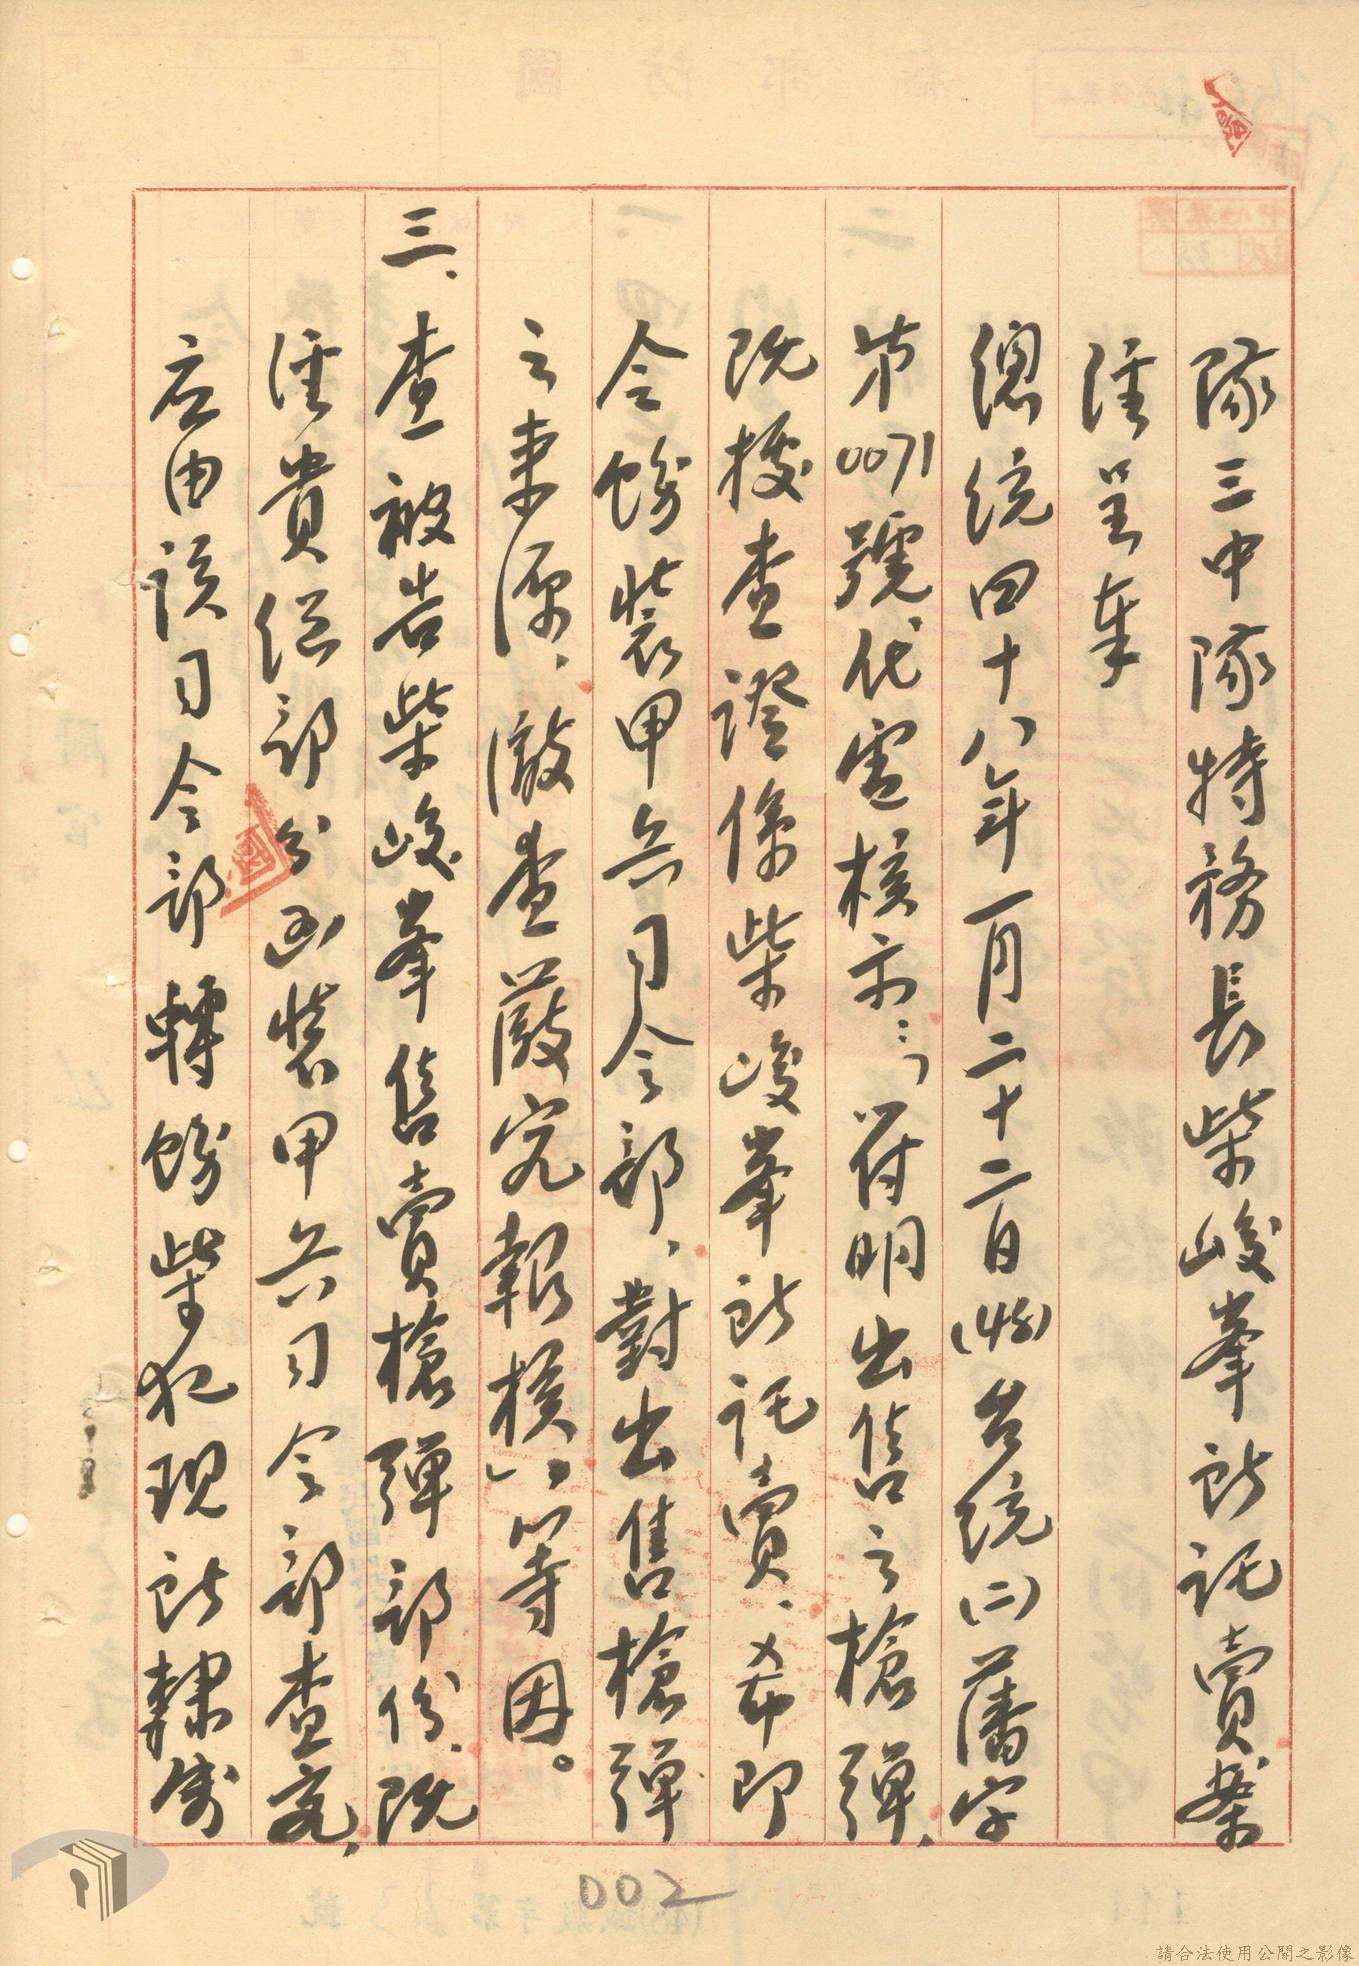 隊三中隊特務長柴峻峯所託賣案
經呈奉
總統四十八年一月二十二日(48)台統(二)藩字
第0071號代電核示：「一、附明出售之槍彈，
既據查證係柴峻峯所託賣、希即
令飭裝甲兵司令部，對出售槍彈
之來源，澈查嚴究報核」等因。
三、查被告柴峻峯售賣槍彈部份，既
經貴總部分函裝甲兵司令部查究，
应由該司令部轉飭柴犯現所隸屬
002
請合法使用公開之影像